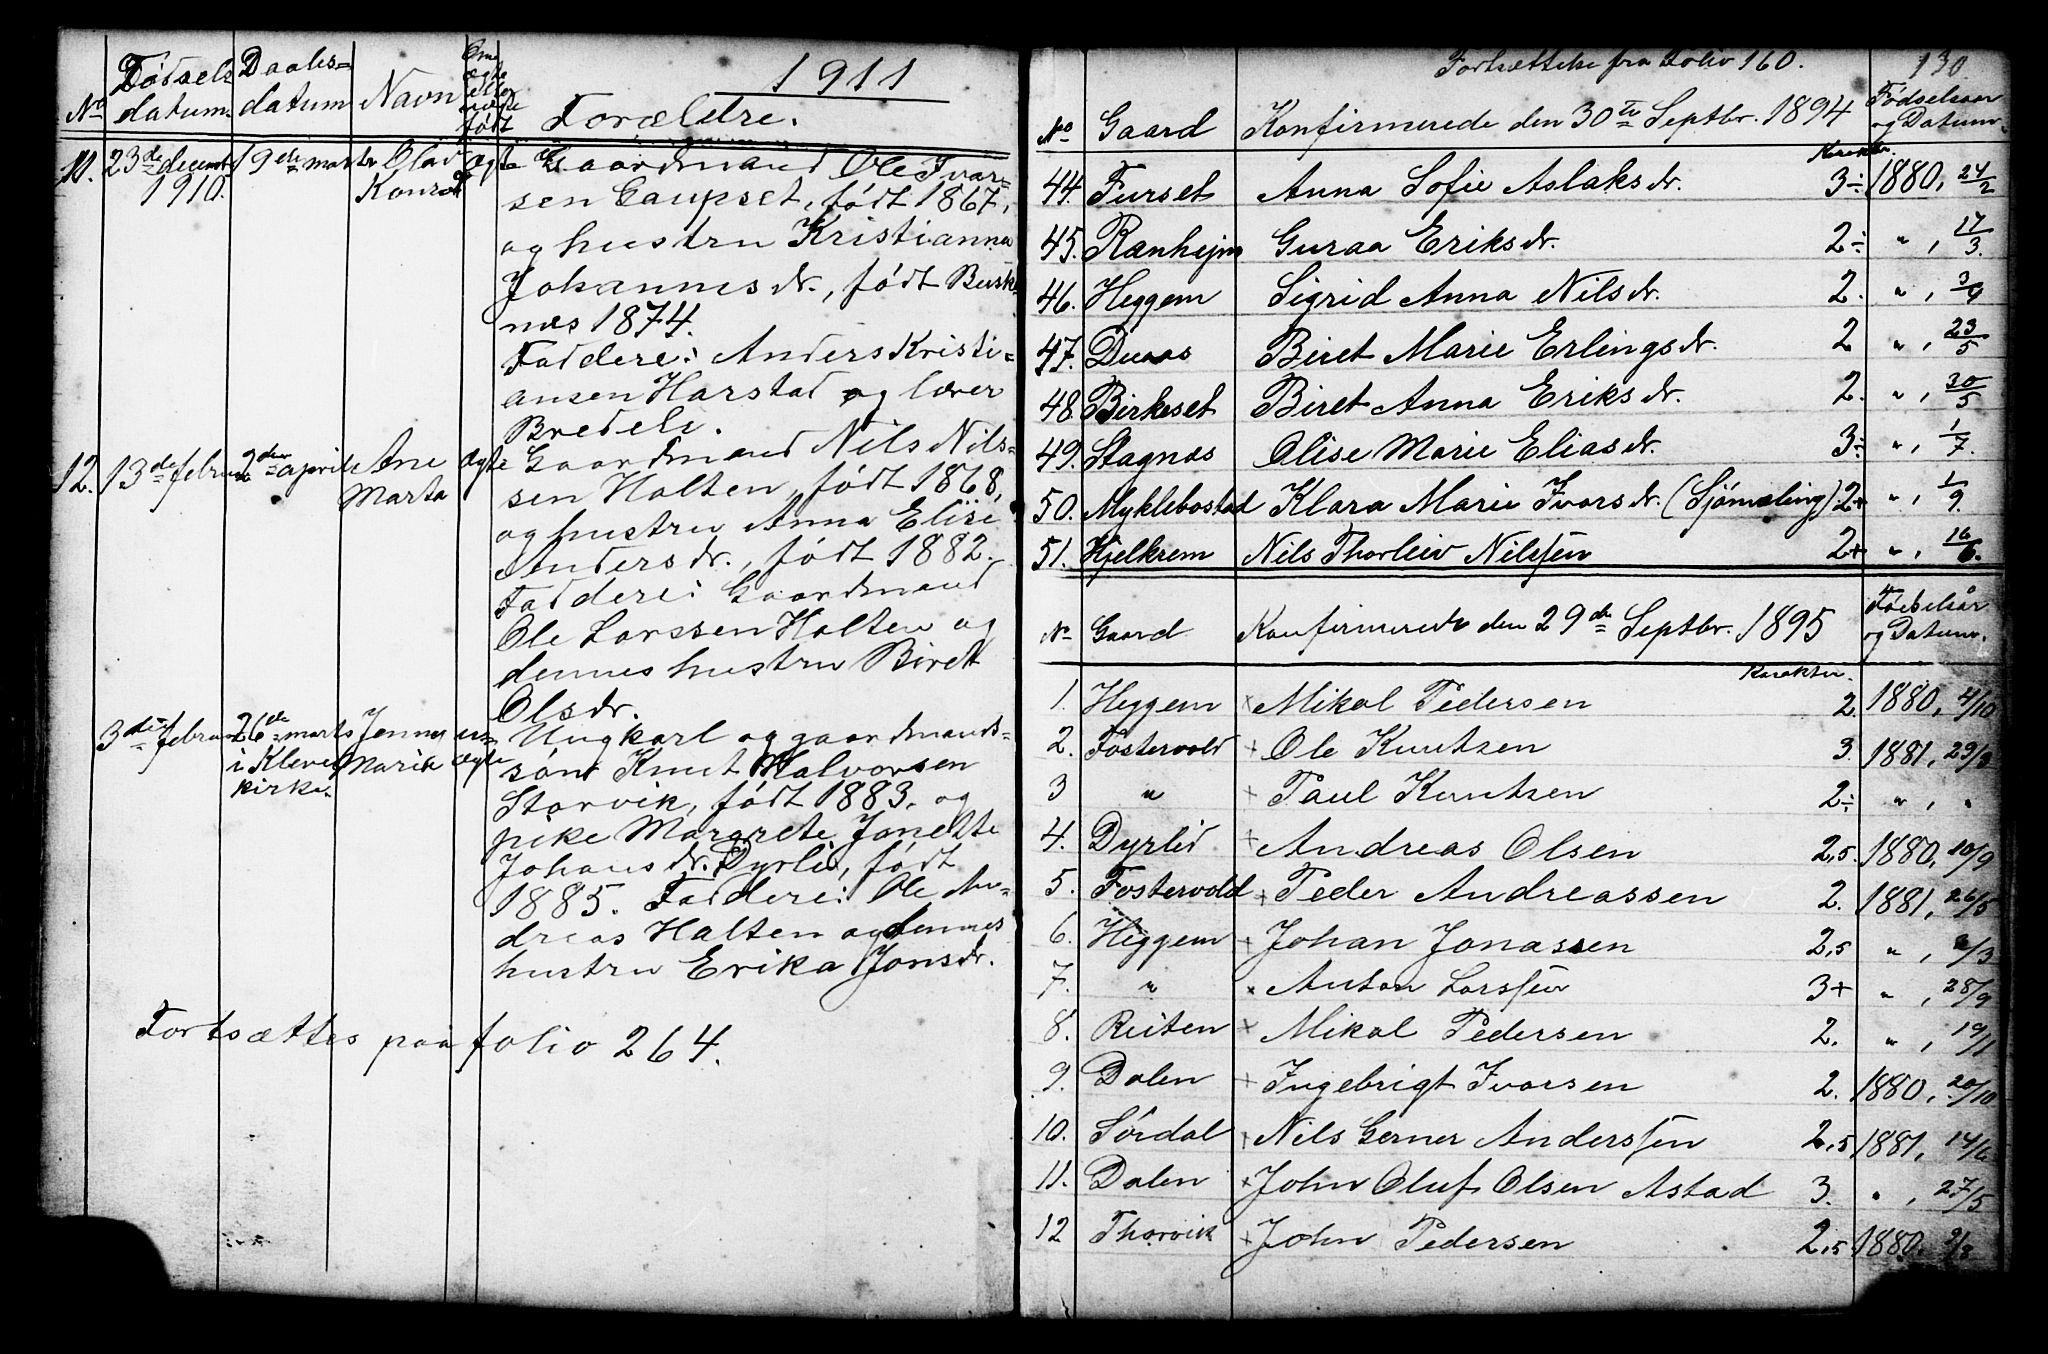 1911
No
Fødsels
datum.
Daabs=
datum
Navn
Om
ægte
eller
uægte
født
Forældre.
11. 23de decembr 19de marts Olav ægte Gaardmand Ole Ivar=
1910. Konrad sen Gaupset, født 1867,
og hustru Kristianna
Johannesdr., født Busk=
næs 1874.
Faddere: Anders Kristi=
ansen Harstad og lærer
Bredeli.
12. 13de februar 2den april Ane ægte Gaardmand Nils Nils=
Marta sen Holten, født 1868,
og hustru Anna Elise
Andersdr., født 1882.
Faddere: Gaardmand
Ole Larssen Holten og
dennes hustru Biret
Olsdr.
3die februar 26de marts Jenny u= Ungkarl og gaardmands=
i Kleive Marie ægte søn Knut Halvorsen
kirke. Storvik, født 1883. og
pike Margrete Jonette
Johansdr. Dyrli, født
1885. Faddere: Ole An=
dreas Holten og dennes
hustru Erika Jonsdr.
Fortsættes paa folio 264.
Fortsættelse fra Folio 160. 130.
No Gaard Konfirmerede den 30te Septbr. 1894 Fødselsaar
og Datum.
Karakter.
44. Furset Anna Sofie Aslaksdr. 3÷ 1880, 24/2
45. Ranheim Guraa Eriksdr. 2÷ " , 17/3.
46. Heggem Sigrid Anna Nilsdr. 2. " , 3/4
47. Duaas Biret Marie Erlingsdr. 2 " , 23/5
48. Birkeset Biret Anna Eriksdr. 2. " , 30/5
49. Stagnæs Olise Marie Eliasdr. 3÷ " , 1/7.
50. Myklebostad Klara Marie Ivarsdr. (Sjømæling) 2+ " , 1/9.
51. Hjelkrem Nils Thorleiv Nilssen 2+ " , 16/6.
No Gaard Konfirmerede den 29de Septbr. 1895 Fødselsår
og Datum.
Karakter.
1. Heggem × Mikal Pedersen 2. 1880, 4/10
2. Fostervold × Ole Knutsen 3. 1881, 29/3
3 " × Paul Knutsen 2÷ " , "
4. Dyrlid × Andreas Olsen 2,5. 1880, 10/9
5. Fostervold × Peder Andreassen 2. 1881, 26/5
6. Heggem × Johan Jonassen 2,5 " , 2/3
7. " × Anton Larssen 3+ " , 28/9
8. Reiten × Mikal Pedersen 2. " , 19/11
9. Dalen × Ingebrigt Ivarsen 2. 1880, 20/10
10. Sørdal × Nils Gerner Anderssen 2,5 1881, 14/6
11. Dalen × John Oluf Olsen Astad 3. " , 27/5
12 Thorvik × John Pedersen 2,5 1880. 9/8